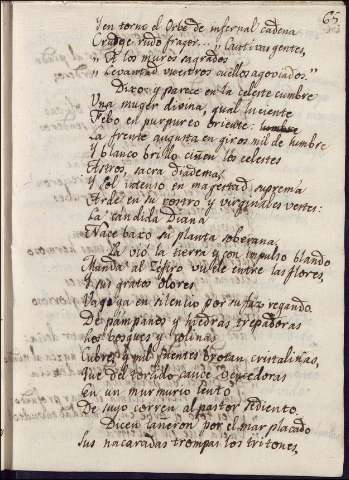 65
Y en torno el Orbe de infernal cadena
Cruge rudo fragor... "Cautivas gentes,
"A los muros sagrados
"Levantad vuestros cuellos agoviados."
Dixo: y parece en la celeste cumbre
Una muger divina, qual luciente
Febo en purpureo oriente:
La frente augusta en giros mil de lumbre
Y blanco brillo ciñen los celestes
Astros, sacra diadema;
Y Sol intenso en magestad suprema
Arde en su rostro y virginales vestes:
La candida Diana
Nace baxo su planta soberana.
La vió la tierra y con impulso blando
Manda al Zefiro vuele entre las flores,
Y sus gratos olores
Vaya en silencio por su faz regando.
De pámpanos y hiedras trepadoras
los bosques y colinas
Cubre, y mil fuentes brotan cristalinas,
Que del torcido cauce
En un murmurio lento
De suyo corren al pastor sediento.
Dicen tañeron por el mar placado
Sus nacaradas trompas los tritones,